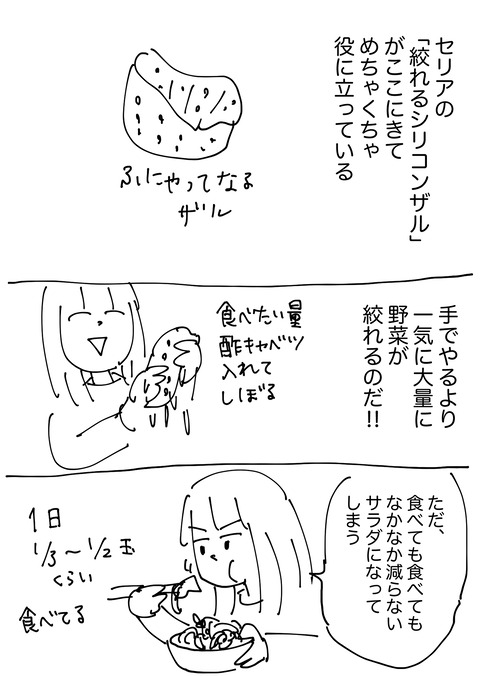 セリアの
「絞れるシリコンザル」
がここにきて
めちゃくちゃ
役に立っている
ふにゃってなる
ザル
手でやるより
一気に大量に
野菜が
絞れるのだ!!
食べたい量
酢キャベツ
入れて
しぼる
ただ、
食べても食べても
なかなか減らない
サラダになって
しまう
1日
1/3〜1/2玉
くらい
食べてる